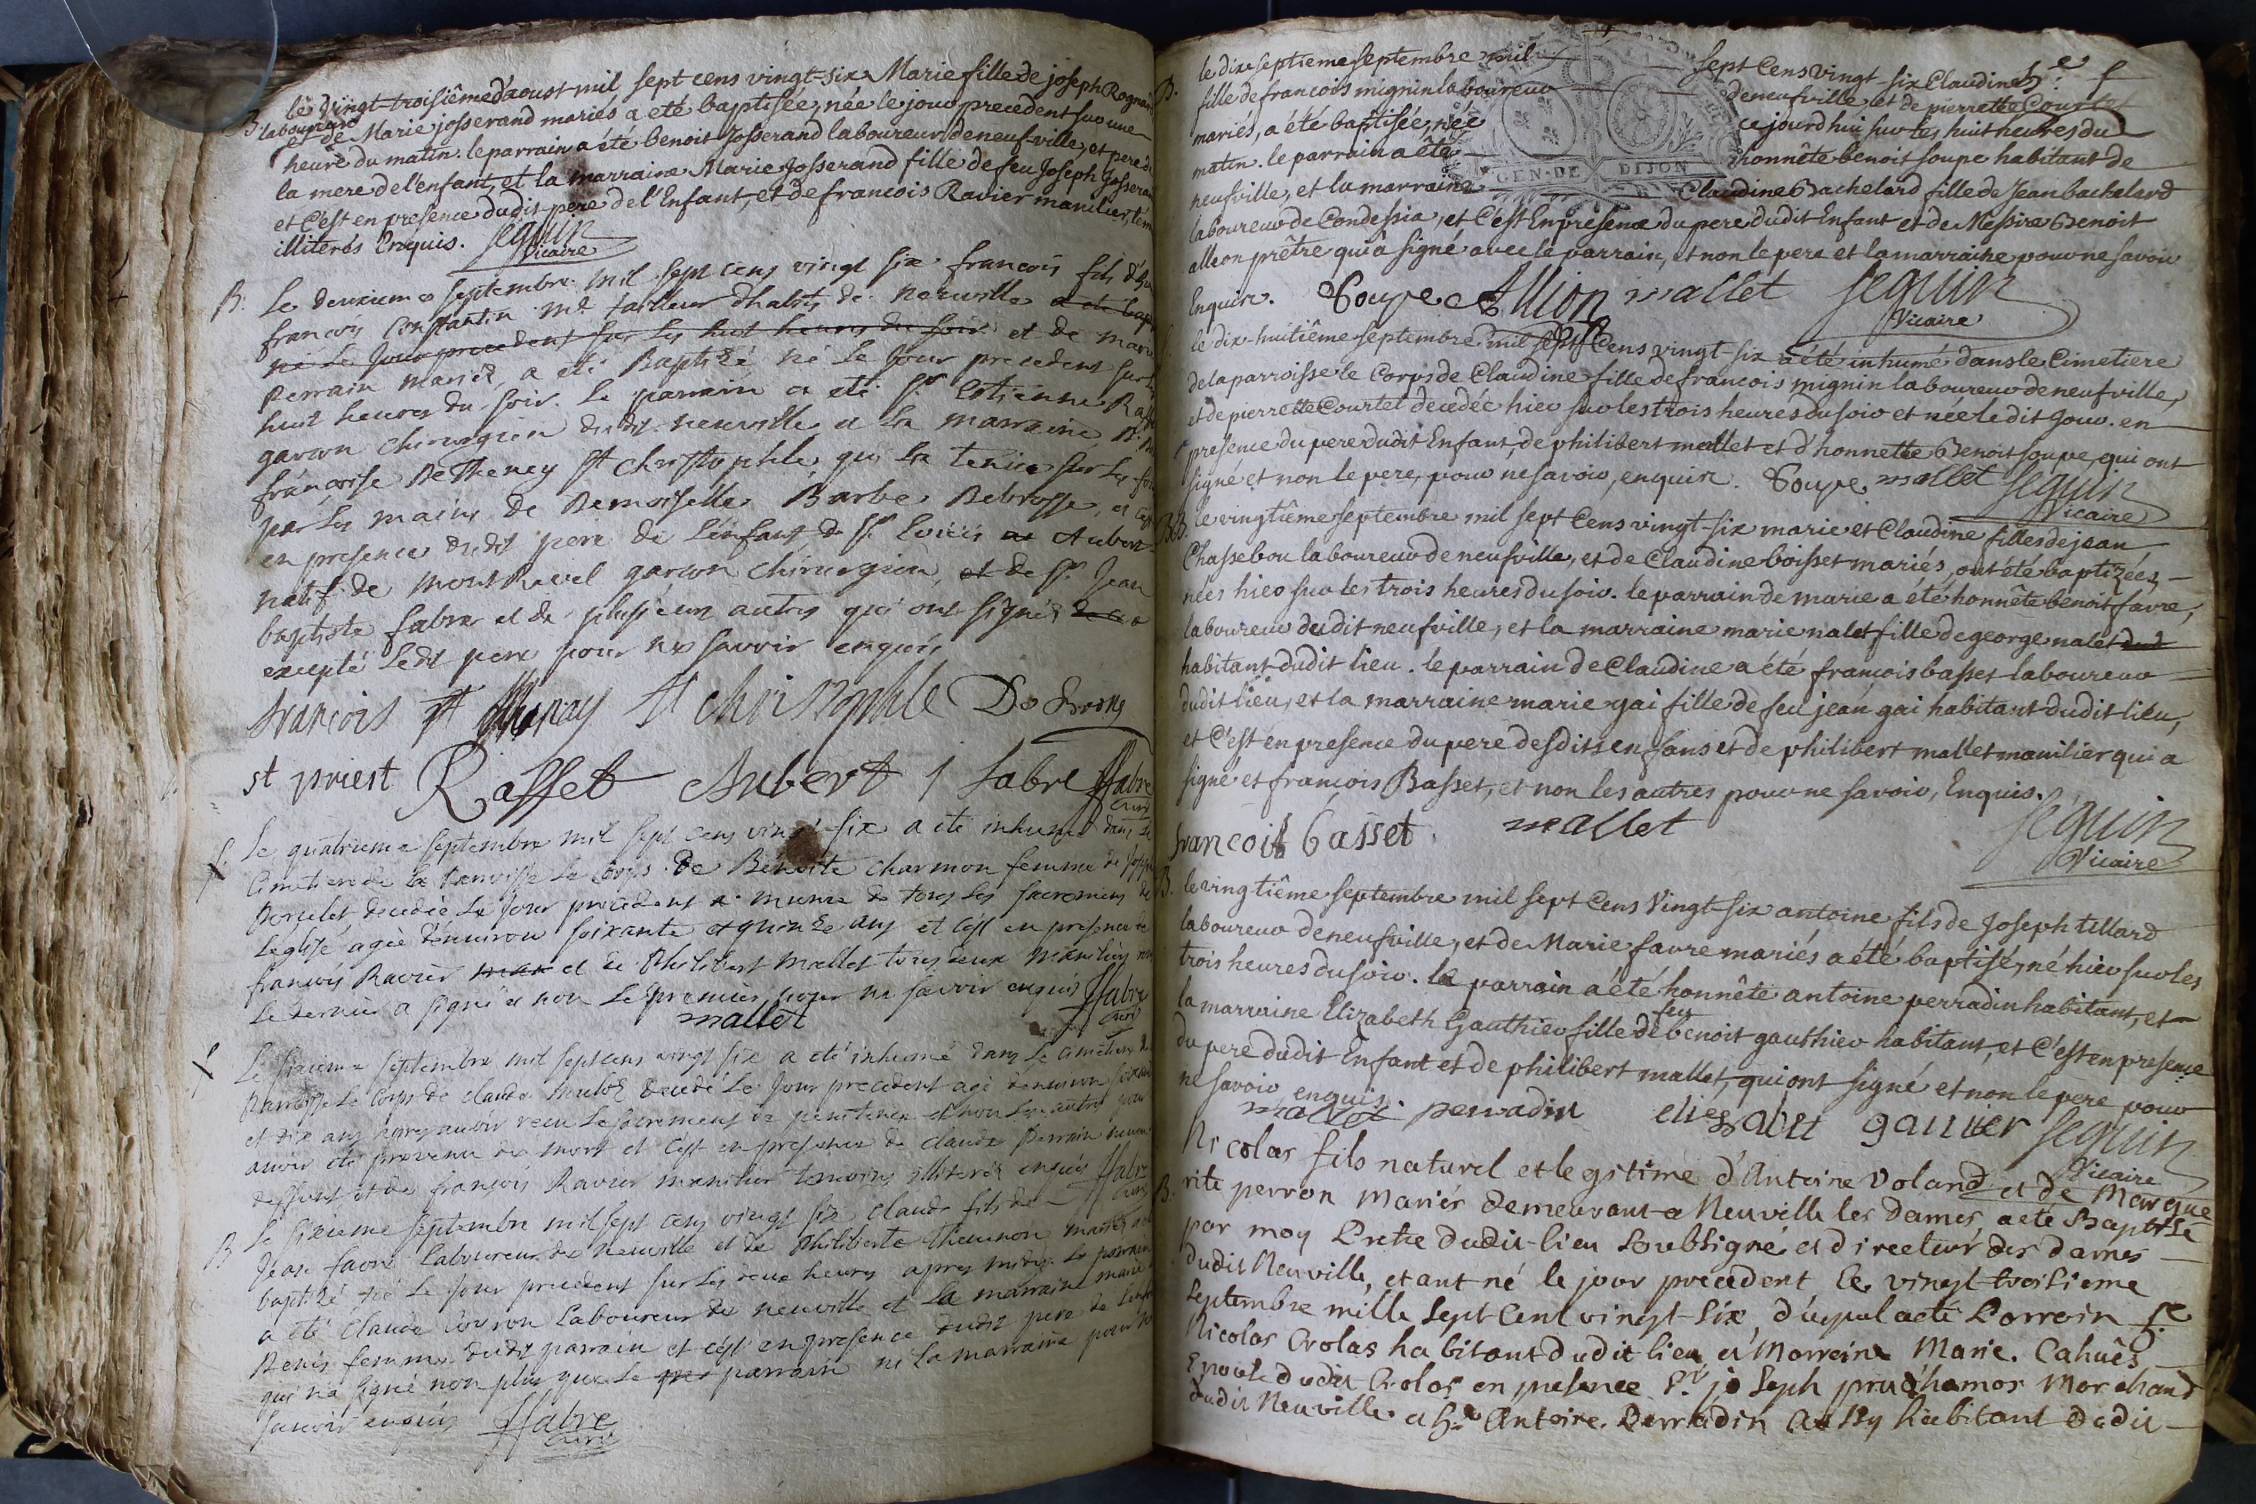 B. le vingt-troisiême d'aoust mil sept cens vingt-six Marie fille de joseph Rognard
laboureur
et de Marie josserand mariés a été baptisée, née le jour precedent sur une
heure du matin. le parrain a été benoit Josserand laboureur de neufville, et pere de
la mere de l'enfant, et la marraine Marie Josserand fille de feu Joseph Josserand
et C'est en presence dudit pere de l'Enfant, et de francois Ravier manilier, tem
illiterés Enquis. Seguin
Vicaire
B. Le deuxieme septembre mil sept cens vingt six francois fils d'
francois Constantin me tailleur d'habits de neuville a eté bap
né le jour precedent sur les huit heures du soir et de marie
Perrain mariés, a eté Baptizé, né le jour precedent sur les
huit heures du soir. le parrain a eté sr. Estienne Raffet
garcon chirurgien dudit neuville et la marraine
francoise De Theney st Christophle, qui la tenu sur les fon
par les mains de Demoiselle Barbe Debrosse, et c'est
en presence dudit pere de l'enfant de sr. Louis de Aubert
natif de Mont Revel garcon chirurgien, et de sr. Jean
baptiste fabre et de plusieurs autres qui ont signés
excepté ledit pere pour ne savoir enquis
francois st Thenay st christophle De brosse
st priest Raffet Aubert J fabre ffabre
curé
f. Le quatrieme septembre mil sept cens vingt-six a eté inhumé dans le
Cimetiere de la Parroisse le Corps de Benoite Charmon femme de
Porcelet decedée le jour precedent munie de tous les sacremens de
l'eglise agée d'environ soixante et quinze ans et c'est en presence de
francois Ravier et de Philibert Mallet tous deux maniliers
le dernier a signé et non le premier, pour ne savoir enquis ffabre
mallet curé
f Le sixieme septembre mil sept cens vingt six a eté inhumé dans le Cimetiere
Parroisse le Corps de claude decedé le jour precedent agé d'environ soixante
et dix ans apres avoir receu le sacrement de penitence et non les autres pour
avoir eté prevenu de mort et c'est en presence de claude Perrain
deffunt et de francois Ravier manilier temoins illiterés enquis ffabre
curé
B Le sixieme septembre mil sept cens vingt six claude fils de
Jean favre laboureur de neuville et de Philiberte Thevenon mariés a eté
baptizé né le jour precedent sur les deux heures apres midy le parrain
a eté Claude Covron laboureur de neuville et la marraine marie
Denis femme dudit parrain et c'est en presence dudit pere de l'enfant
qui n'a signé non plus que le parrain ni la marraine pour ne
savoir enquis ffabre
curé
B. le dix septieme septembre mil sept Cens vingt-six Claudine
fille de francois mignin laboureur de neufville et de pierrette Courtet
mariés, a été baptisée, née ce jourd'hui sur les huit heures du
matin. le parrain a été honnête benoit soupe habitant de
GEN. DE DIJON
neufville, et la marraine Claudine Bachelard fille de Jean bachelard
laboureur de Condessia, et C'est En presence du pere dudit Enfant et de Messire Benoit
allion prêtre qui a signé avec le parrain, et non le pere et la marraine pour ne savoir
Enquis. Soupe Allion mallet Seguin
Vicaire
le dix-huitiême septembre mil sept Cens vingt-six a été inhumé dans le Cimetiere
de la parroisse le Corps de Claudine fille de francois mignin laboureur de neufville,
et de pierrette Courtet decedée hier sur les trois heures du soir et née ledit jour. en
presence du pere dudit Enfant, de philibert mallet et d'honnette Benoit soupe, qui ont
signé et non le pere, pour ne savoir, enquis. Soupe mallet Seguin
Vicaire
B.B. le vingtiême septembre mil sept Cens vingt-six marie et Claudine filles de jean
Chassebou laboureur de neufville, et de Claudine boisset mariés, ont été baptizées,
nées hier sur les trois heures du soir. le parrain de marie a été honnête benoit favre,
laboureur dudit neufville, et la marraine marie nalet fille de george nalet dud
habitant dudit lieu. le parrain de Claudine a été francois basset laboureur
dudit lieu, et la marraine marie gai fille de feu jean gai habitant dudit lieu,
et C'est en presence du pere desdits enfans et de philibert mallet manilier qui a
signé et francois Basset, et non les autres pour ne savoir, Enquis.
francois basset mallet Seguin
Vicaire
B. le vingtiême septembre mil sept Cens Vingt-six antoine fils de Joseph tillard
laboureur de neufville, et de Marie favre mariés a été baptisé, né hier sur les
trois heures du soir. le parrain a été honnête antoine perradin habitant, et
la marraine Elizabeth Gauthier fille de feu benoit gauthier habitant, et C'est en presence
du pere dudit Enfant et de philibert mallet, qui ont signé et non le pere pour
ne savoir enquis.
mallet perradin eliesabet gautier Seguin
Vicaire
Nicolas fils naturel et legitime d'Antoine Voland et de Margue
B. rite perron Mariés demeurant a Neuville les Dames, a eté Baptisé
par moy Pretre dudit-lieu Soubsigné et directeur des dames
dudit Neuville, etant né le jour precedent le vingt-troisieme
Septembre mille Sept Cent vingt-Six, duquel a eté Parrein
Nicolas Crolas habitant dudit lieu et Marreine Marie Cahuês
Epouse dudit Crolas en presence Sr. joseph prud'hamos Marchand
dudit Neuville et he Antoine Perradin aussy habitant dudit